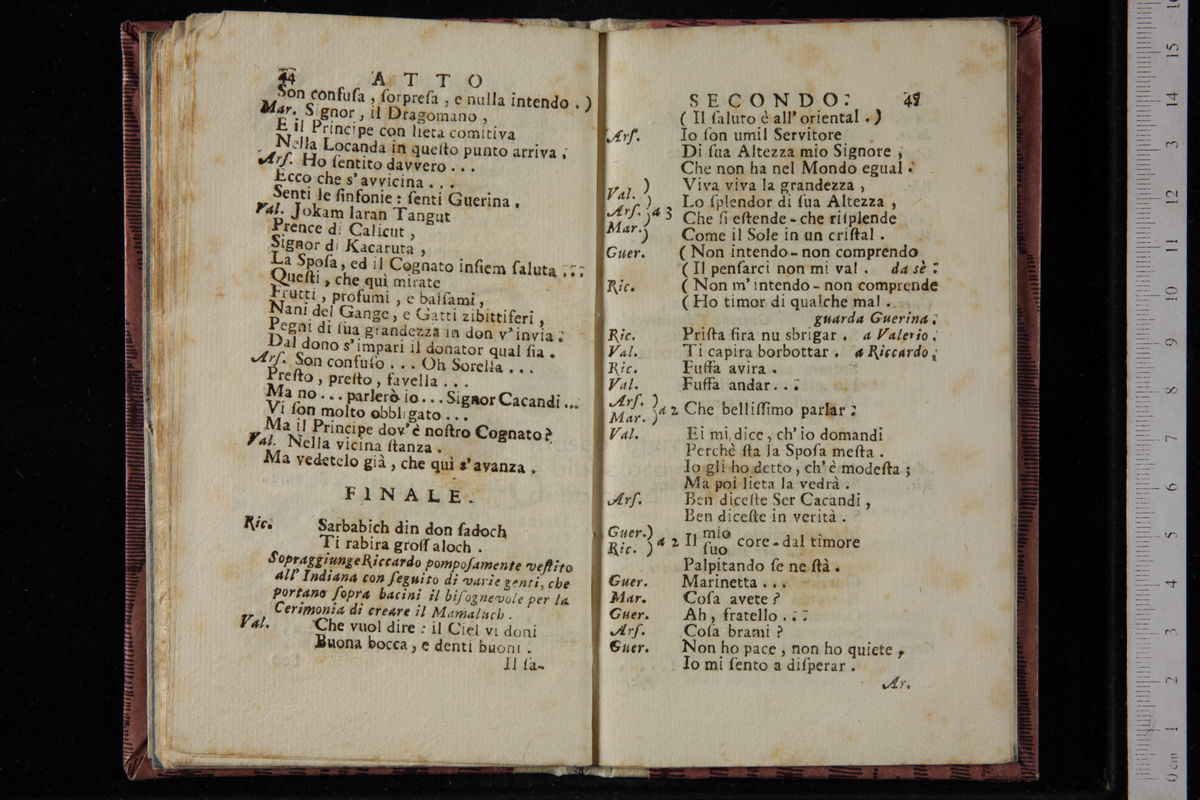 44 ATTO
Son confuſa , ſorpreſa , e nulla intendo . )
Mar. Signor , il Dragomano ,
E il Principe con lieta comitiva
Nella Locanda in queſto punto arriva .
Arſ. Ho ſentito davvero . . .
Ecco che s'avvicina . . .
Senti le ſinfonie : ſenti Guerina .
Val. Jokam laran Tangut
Prence di Calicut ,
Signor di Kacaruta ,
La Spoſa , ed il Cognato inſiem ſaluta . . .
Queſti , che quì mirate
Frutti , profumi , e balſami ,
Nani del Gange , e Gatti zibittiferi ,
Pegni di ſua grandezza in don v'invia .
Dal dono s'impari il donator qual ſia .
Arſ. Son confuſo . . . Oh Sorella . . .
Preſto , preſto , favella . . .
Ma no . . . parlerò io . . . Signor Cacandi . . .
Vi ſon molto obbligato . . .
Ma il Principe dov'è noſtro Cognato ?
Val. Nella vicina ſtanza .
Ma vedetelo già , che quì s'avanza .
FINALE.
Ric. Sarbabich din don ſadoch
Ti rabira groſſ aloch .
Sopraggiunge Riccardo pompoſamente veſtito
all' Indiana con ſeguito di varie genti, che
portano ſopra bacini il biſognevole per la
Cerimonia di creare il Mamaluch .
Val. Che vuol dire : il Ciel vi doni
Buona bocca , e denti buoni .
Il ſa-
SECONDO. 45
( Il ſaluto è all' oriental . )
Arſ. Io ſon umil Servitore
Di ſua Altezza mio Signore ,
Che non ha nel Mondo egual .
) Viva viva la grandezza ,
Val. ) Lo ſplendor di ſua Altezza ,
Arſ. ) a 3 Che ſi eſtende - che riſplende
Mar. ) Come il Sole in un criſtal .
Guer. ( Non intendo - non comprendo
( Il penſarci non mi val . da sè .
Ric. ( Non m'intendo - non comprende
( Ho timor di qualche mal .
guarda Guerina .
Ric. Priſta ſira nu sbrigar . a Valerio .
Val. Ti capira borbottar . a Riccardo .
Ric. Fuſſa avira .
Val. Fuſſa andar . . .
Arſ. )
Mar. ) a 2 Che belliſſimo parlar .
Val. Ei mi dice , ch'io domandi
Perchè ſta la Spoſa meſta .
Io gli ho detto , ch'è modeſta ;
Ma poi lieta la vedrà .
Arſ. Ben diceſte Ser Cacandi ,
Ben diceſte in verità .
Guer. ) mio
Ric. ) a 2 Il ſuo core - dal timore
Palpitando ſe ne ſtà .
Guer. Marinetta . . .
Mar. Coſa avete ?
Guer. Ah , fratello . . .
Arſ. Coſa brami ?
Guer. Non ho pace , non ho quiete ,
Io mi ſento a diſperar .
Ar.
0 cm 1 2 3 4 5 6 7 8 9 10 11 12 13 14 15